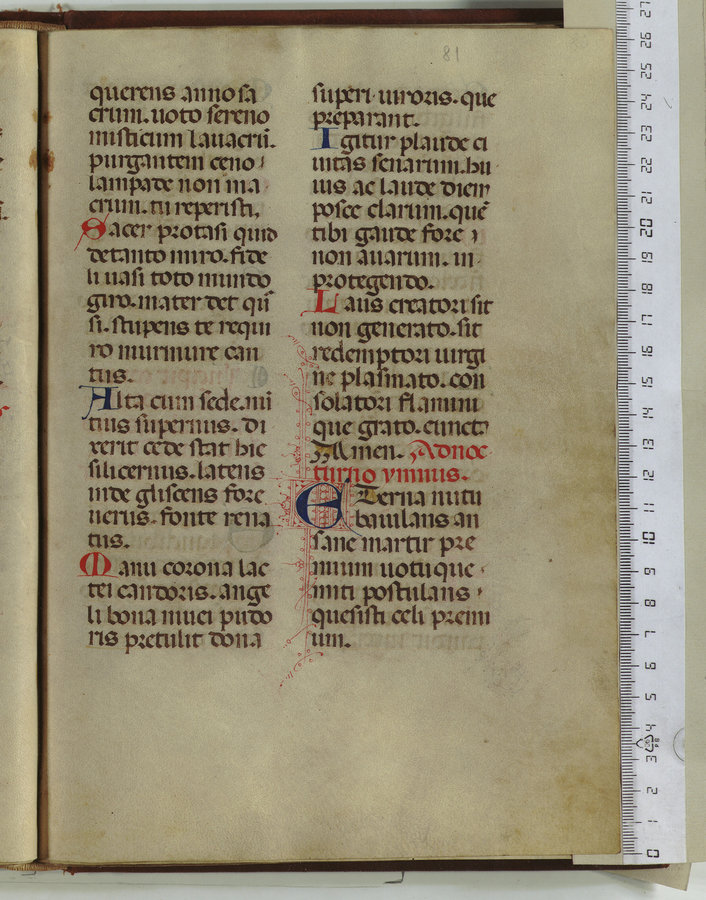 81
querens anno sa
crum. uoto sereno
misticum lauacrū.
purgantem ceno
lampade non ma
crum. tu reperisti.
Sacer protasi quid
detanto miro. fide
li uasi toto mundo
giro. mater det qui
si. stupens te requi
ro murmure can
tus.
Alta cum sede. mi
tius superius. di
rerit cede stat hic
silicernus. latens
inde gliscens fore
uerus. fonte rena
tus.
Manu corona lac
tei candoris. ange
li bona muci pudo
ris pretulit dona
superi uiroris. que
preparant.
Igitur plaude ci
uitas senarum. hu
ius ac laude diem
posce clarum. quē
tibi gaude fore
non auarum. in
protegendo.
Laus creatori sit
non generato. sit
redemptori uirgi
ne plasmato. con
solatori flamini
que grato. cuncta
Amen. Adnoc
turno ymnus.
ETerna nutu
baiulans an
sane martir pre
mium uotu que
miti postulans
quesisti celi premi
um.